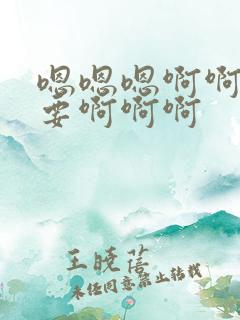 嗯嗯嗯啊啊
要啊啊啊
王晓蓓
未经同意禁止转载